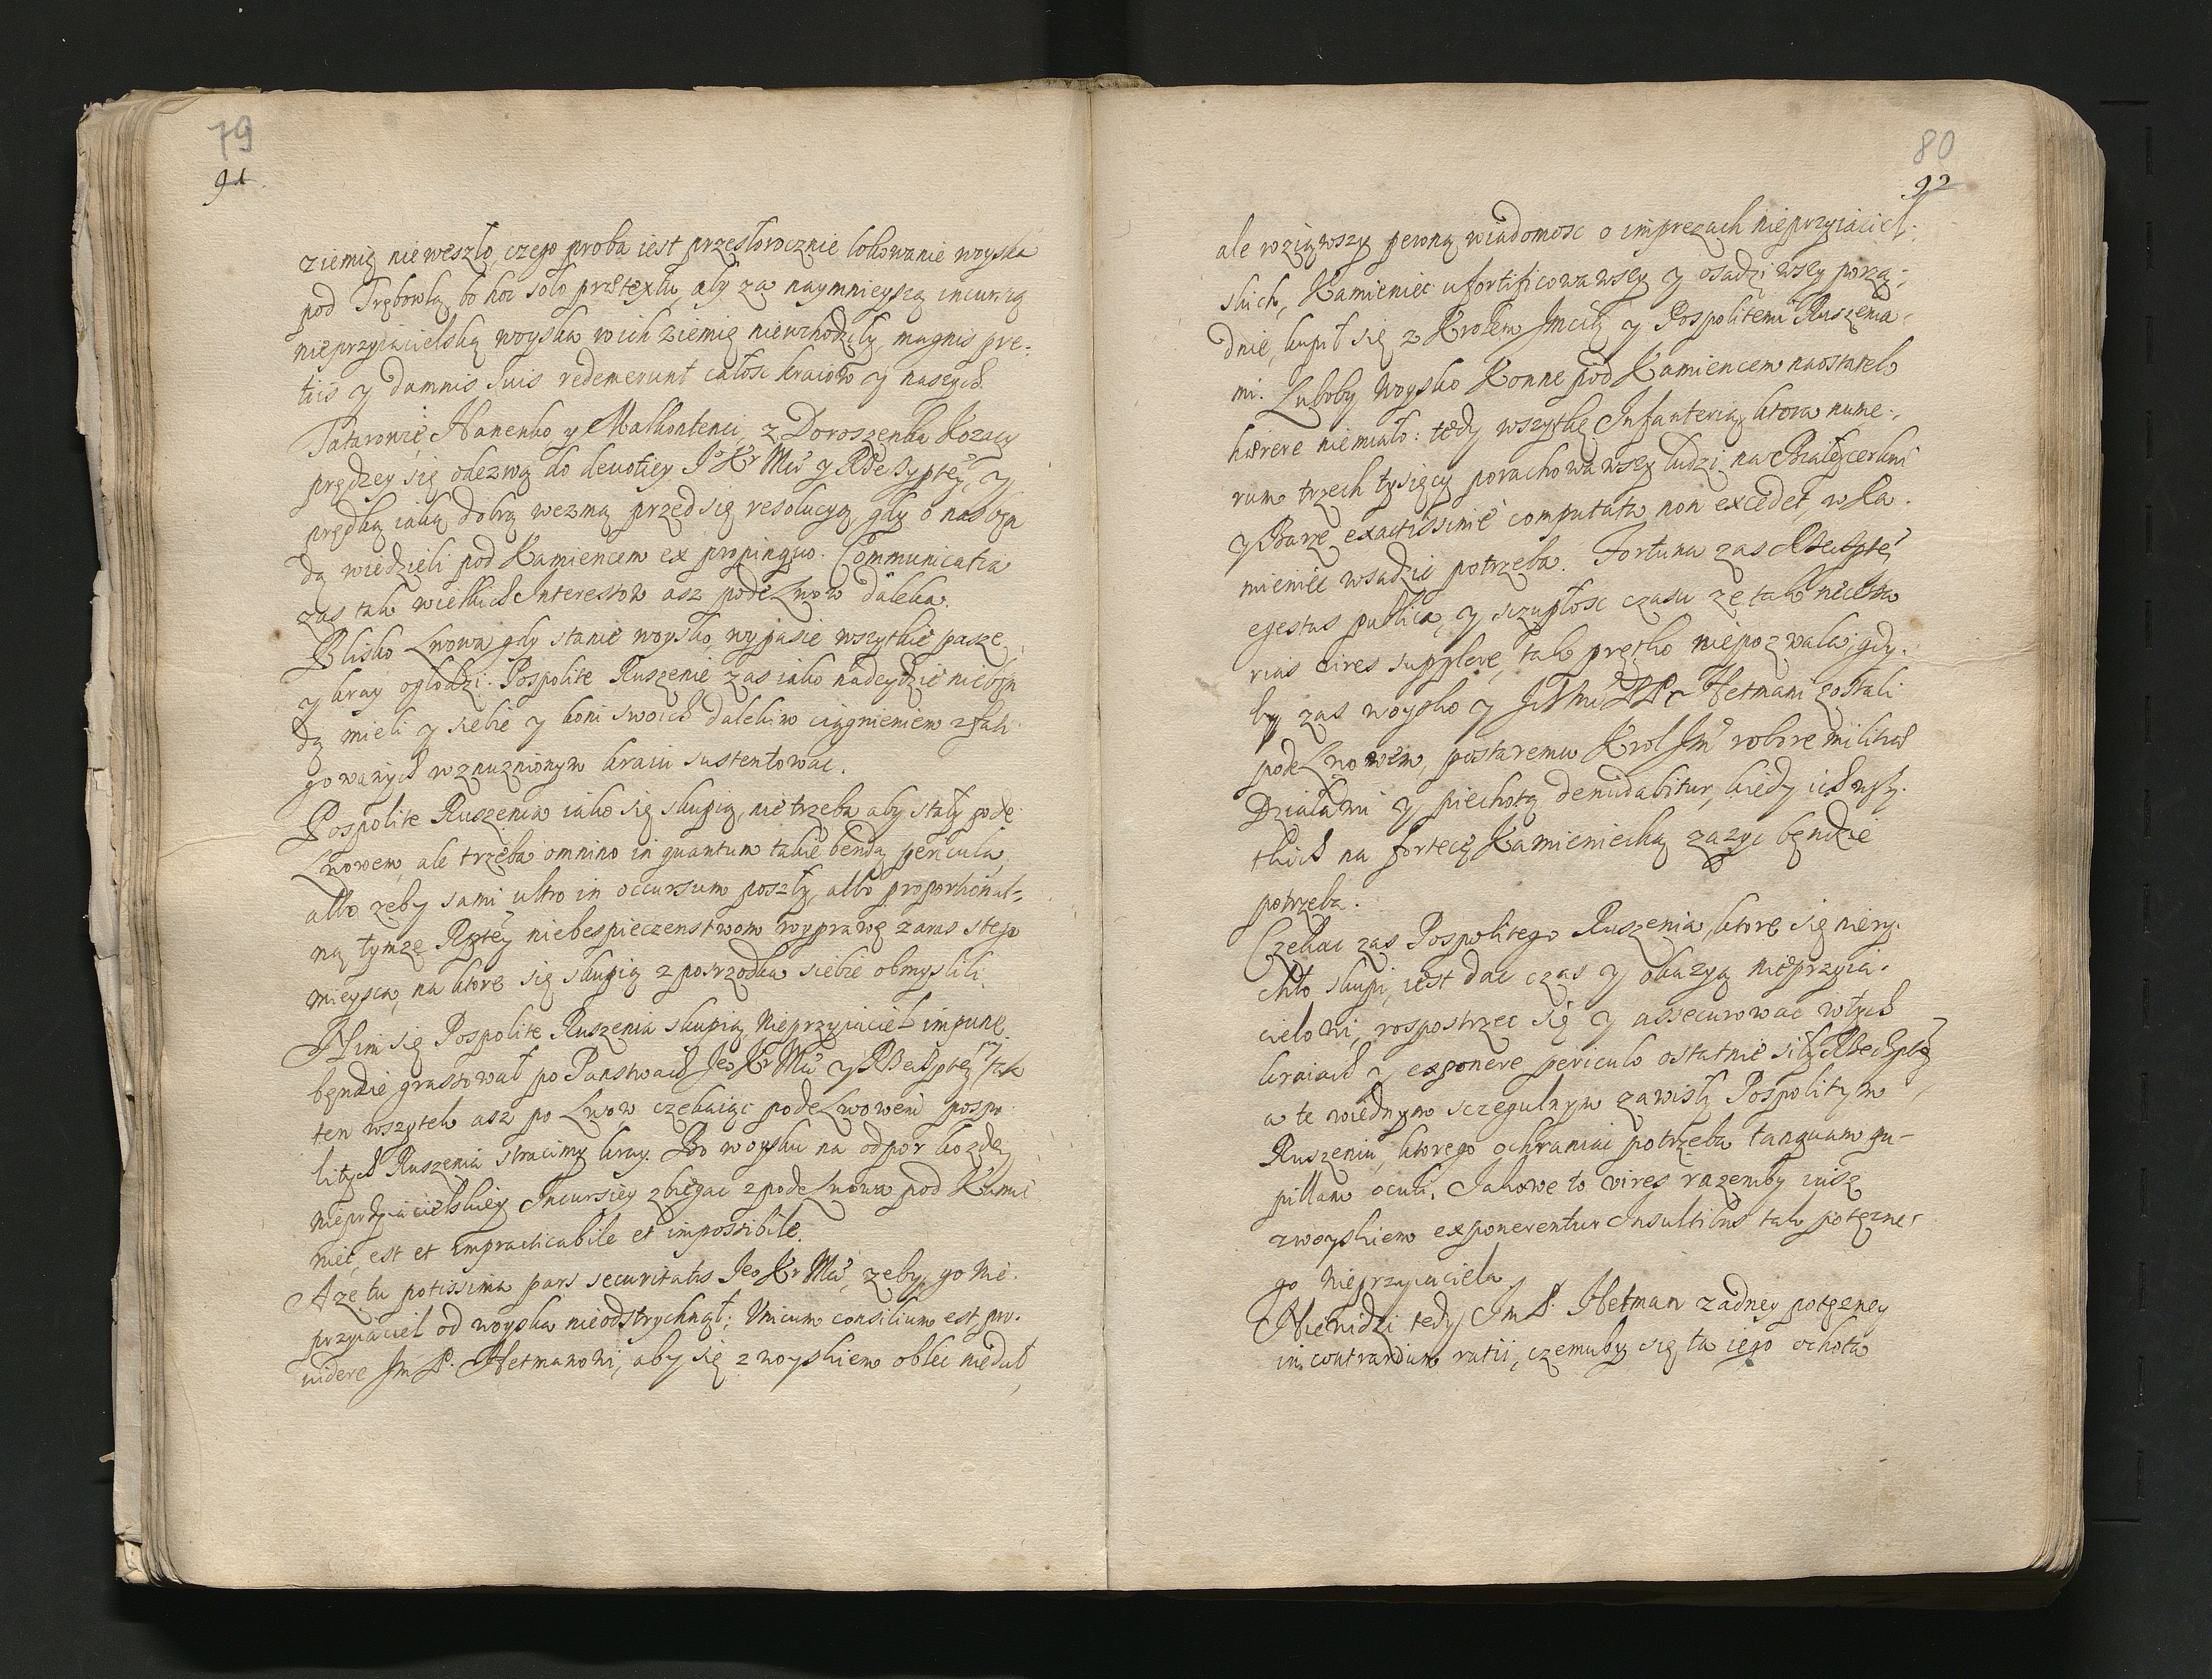 79
91
ziemię nieweszło, czego proba iest przeszłorocznie lokowanie woyska
pod Trębowlą, bo hoc solo prætextu, aby za naymnieyszą incursią
nieprzyiacielską woyska wich ziemię niewchodziły, magnis pre-
tiis y damnis suis redemerunt całosc kraiow y naszych.
Tatarowie, Hanenko y Malkontenci, z Doroszenka Kozacy
prędzey się odezwą do devotiey Jº Kr Mci y Rzeczyptey, y
prędką iaką dobrą wezmą przed się resolucyą, gdy o nas będ
dą wiedzieli pod Kamiencem ex propinquo. Communicatia
zas tak wielkich Interessow asz pode Lwow daleka.
Blisko Lwowa gdy stanie woysko, wypasie wszytkie pasze
y kray ogłodzi. Pospolite Ruszenie zas iako nadeydzie niebę
dą mieli y siebie y koni swoich dalekim ciągnieniem zfati
gowanych wznuznionym kraiu sustentowac.
Pospolite Ruszenia iako się skupią, nie trzeba aby stały pode
Lwowem, ale trzeba omnino in quantum takie bendą pericula,
albo zeby sami ultro in occursum poszły, albo proportional-
ną tymze Rzptey niebespieczenstwom wyprawę zaras stego
mieysca, na ktore się skupią z posrzodka siebie obmyslili.
Nim się Pospolite Ruszenia skupią, Nieprzyiaciel impune
będzie grassował po Panstwach Jeo Kr Mci y RBeczptey tak
ten wszytek asz po Lwow czekaiąc pode Lwowem pospo
litych Ruszenia stracimy kray. Bo woysku na odpor kozdey
nieprzyiacielskiey Incursiey zbiegac z pode Lwowa pod Kamie
niec, est et impracticabile et impossibile.
A ze tu potissima pars securitatis Jeo Kr Mci, zeby go nie-
przyiaciel od woyska nieodstrychnął; Unicum consilium est, pro-
videre Jm P. Hetmanowi, aby się z woyskiem oblec niedał,
80
92
ale wziąwszy pewną wiadomosc o imprezach nieprzyiaciel-
skich, Kamieniec ufortificowawszy y osadziwszy porzą-
dnie, kupił się z Krolem Jmcią y Pospolitemi Ruszenia-
mi. Luboby Woysko Konne pod Kamiencem naostatek
hærere niemiało: tedy wszytkę Infanterią, ktora nume-
rum trzech tysięcy porachowawszy ludzi na Białeycerkwi
y Barze exactissimè computata non excedet, w Ka-
mieniec wsadzic potrzeba. Fortuna zas RBeczptey
egestas publica, y szczupłosc czasu ze tak necessa
rias vires supplere, tak prętko niepozwala; gdy-
by zas woysko y Jchmc PPr Hetmani zostali
pode Lwowem, postaremu Krol Jmc robore militum
Działami y piechotą denudabitur, kiedy ich wszy-
tkich na fortecę Kamieniecką zazyc będzie
potrzeba.
Czekac zas Pospolitego Ruszenia, ktore się niery-
chło skupi, iest dac czas y okazyą nieprzyia-
cielowi, rospostrzec się y assecurowac wtych
kraiach y exponere periculo ostatnie siły RBeczptey
a te wiednym sczegulnym zawisły Pospolitym
Ruszeniu, ktorego ochraniac potrzeba tanquam pu-
pillam oculi. Jakowe to vires razemby iusz
zwoyskiem exponerentur Insultibus tak potęzne-
go Nieprzyiaciela.
Niewidzi tedy Jm P. Hetman zadney potęzney
in contrarium ratii, czemuby się ta iego ochota